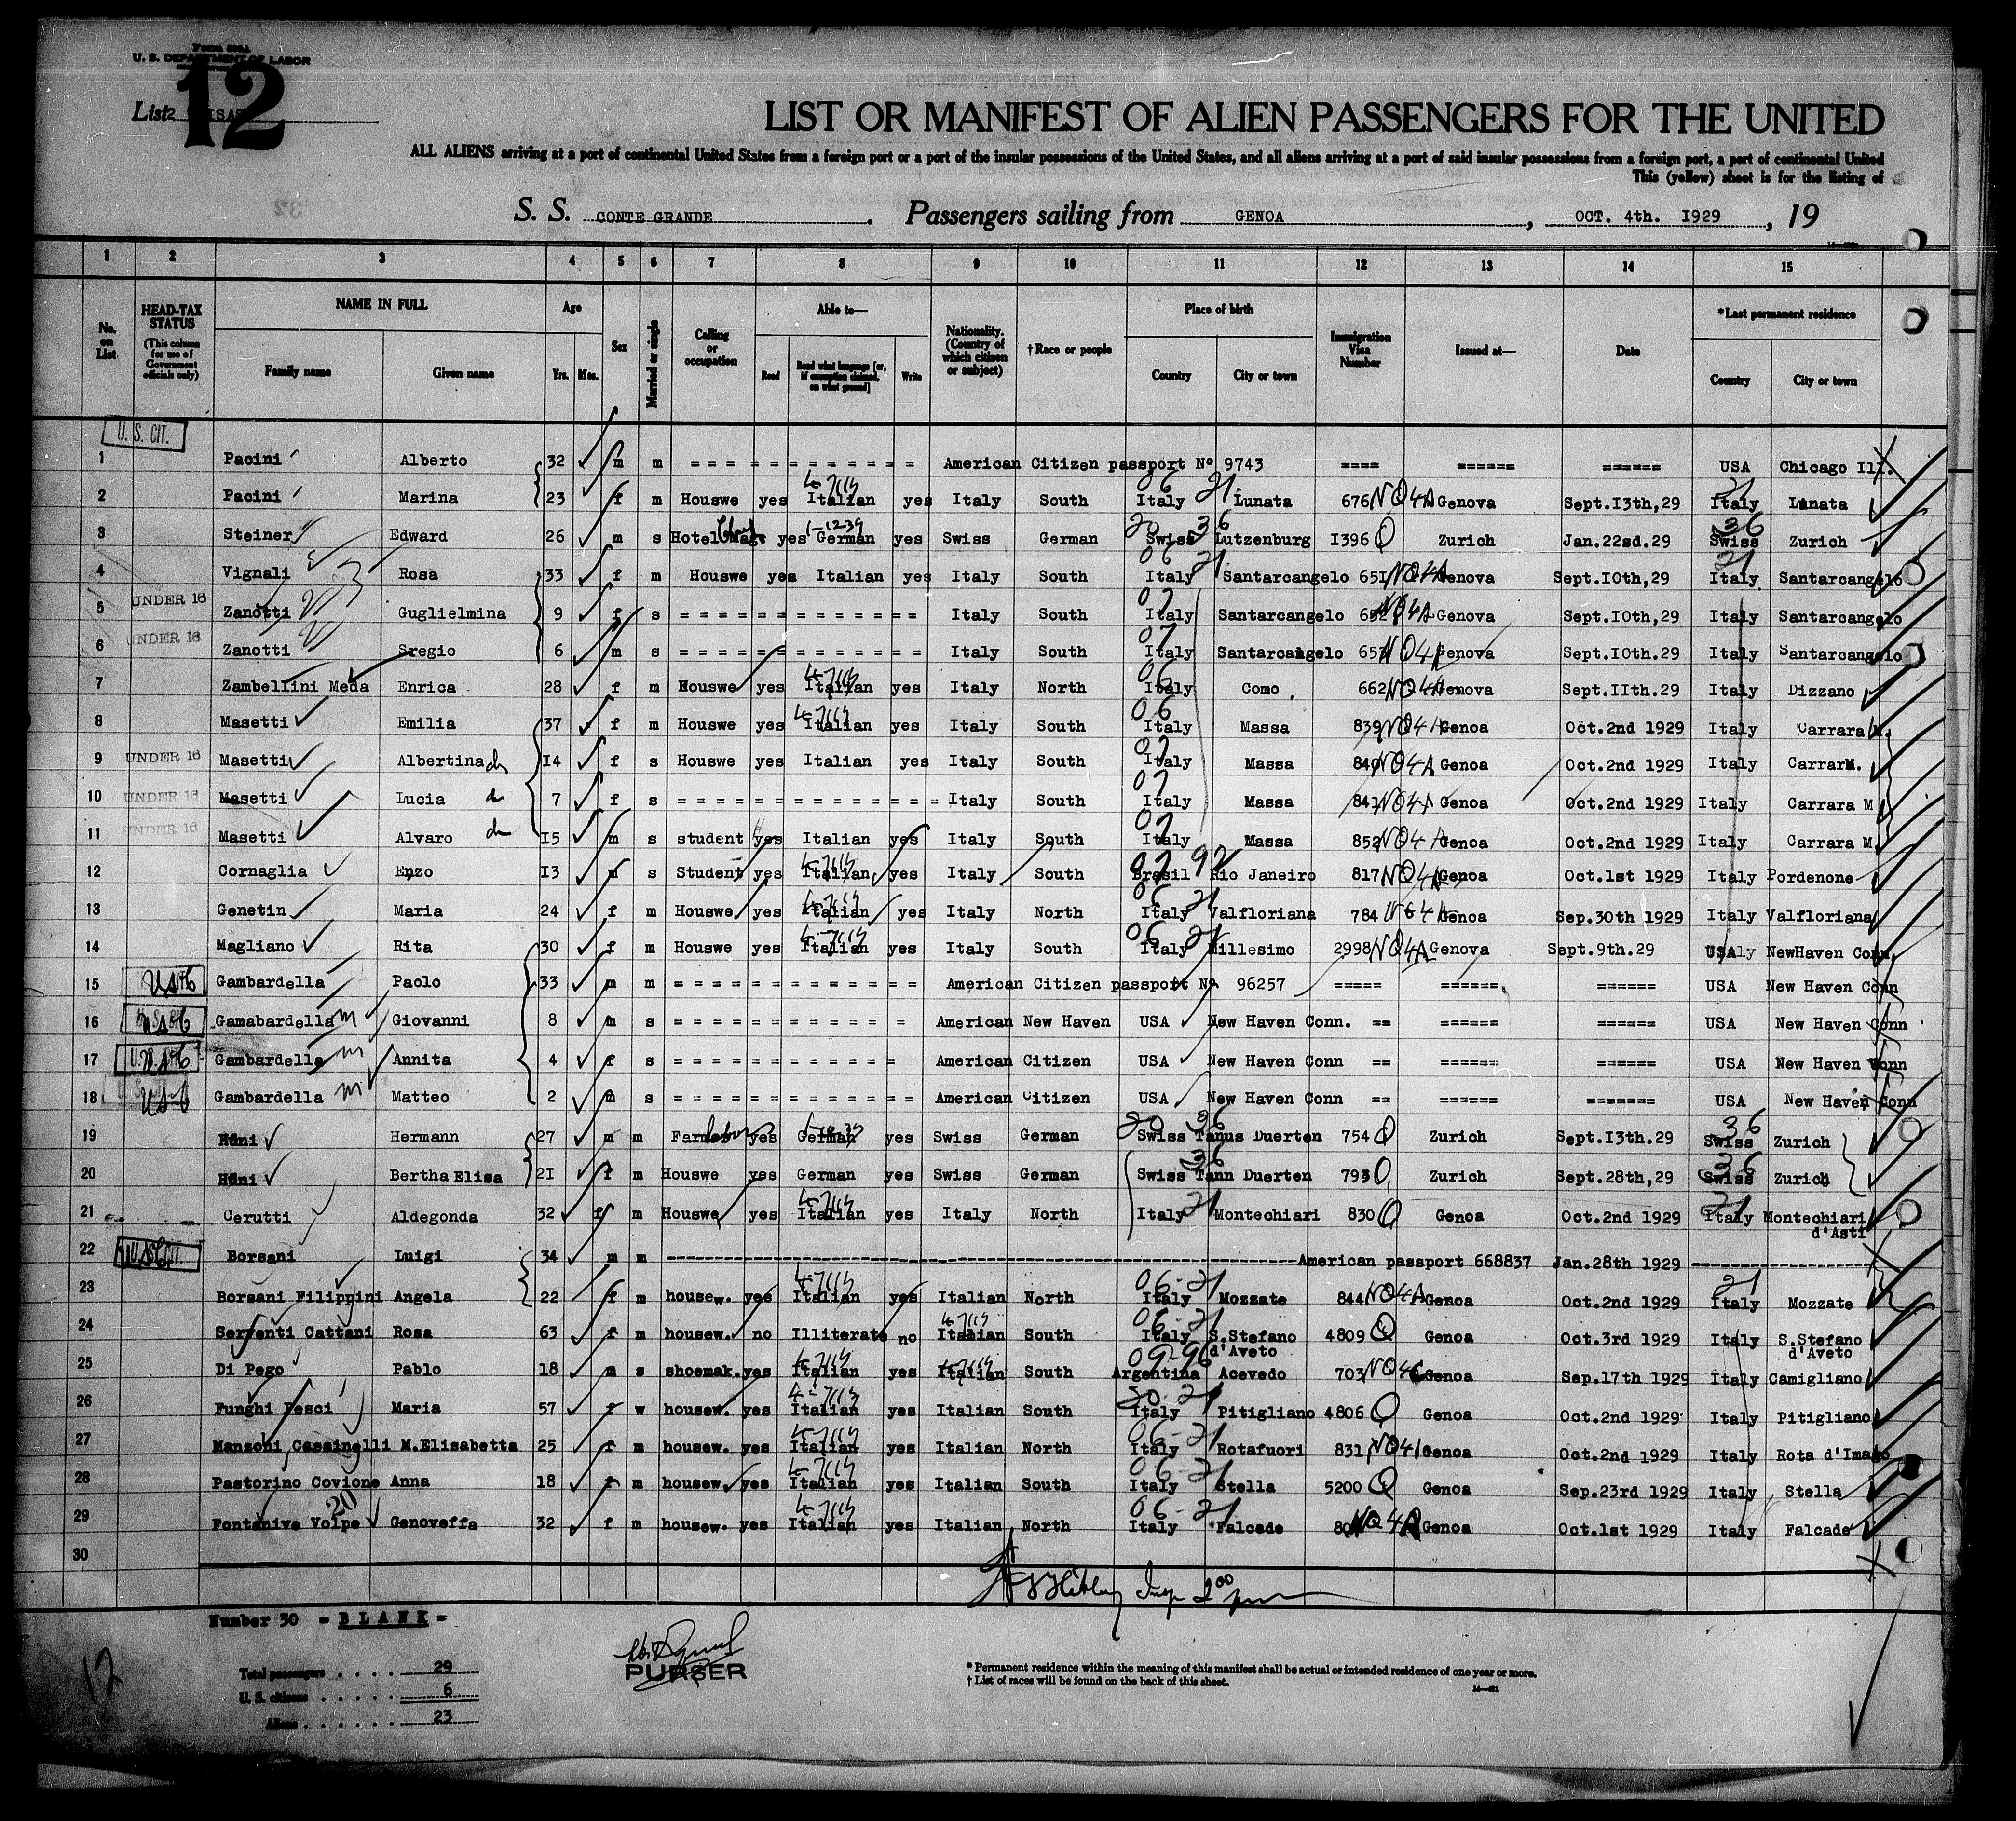 Form 500A
U. S. DEPARTMENT OF LABOR
12
List
LIST OR MANIFEST OF ALIEN PASSENGERS FOR THE UNITED
ALL ALIENS arriving at a port of continental United States from a foreign port or a port of the insular possessions of the United States, and all aliens arriving at a port of said insular possessions from a foreign port, a port of continental United
This (yellow) sheet is for the listing of
S. S. CONTE GRANDE. Passengers sailing from GENOA, OCT. 4th. I929, 19
1 2 3 4 5 6 7 8 9 10 11 12 13 14 15
No. on List
HEAD-TAX STATUS (This column for use of Government officials only)
NAME IN FULL Family name Given name
Age Yrs. Mos.
Sex
Married or single
Calling or occupation
Able to— Read Read what language [or, if exemption claimed, on what ground] Write
Nationality. (Country of which citizen or subject)
†Race or people
Place of birth Country City or town
Immigration Visa Number
Issued at—
Date
*Last permanent residence Country City or town
U. S. CIT.
1 Pacini Alberto 32 m m = = = = = = = = = = = = American Citizen passport Nº 9743 ==== ====== ====== USA Chicago Ill.
2 Pacini Marina 23 f m Houswe yes Italian yes Italy South Italy Lunata 676 NQ4A Genova Sept.I3th,29 Italy Lunata
3 Steiner Edward 26 m s Hotel yes German yes Swiss German Swiss Lutzenburg I396 Q Zurich Jan.22sd.29 Swiss Zurich
4 Vignali Rosa 33 f m Houswe yes Italian yes Italy South Italy Santarcangelo 651 NQ4A Genova Sept.IOth,29 Italy Santarcangelo
5 UNDER 16 Zanotti Guglielmina 9 f s = = = = = = = = = = = = Italy South Italy Santarcangelo 652 NQ4A Genova Sept.IOth,29 Italy Santarcangelo
6 UNDER 16 Zanotti Sregio 6 m s = = = = = = = = = = = = Italy South Italy Santarcangelo 653 NQ4A Genova Sept.IOth.29 Italy Santarcangelo
7 Zambellini Meda Enrica 28 f m Houswe yes Italian yes Italy North Italy Como 662 NQ4A Genova Sept.IIth.29 Italy Dizzano
8 Masetti Emilia 37 f m Houswe yes Italian yes Italy South Italy Massa 839 NQ4A Genoa Oct.2nd 1929 Italy Carrara M.
9 UNDER 16 Masetti Albertina I4 f s Houswe yes Italian yes Italy South Italy Massa 840 NQ4A Genoa Oct.2nd 1929 Italy CarraraM.
10 UNDER 16 Masetti Lucia 7 f s = = = = = = = = = = = = Italy South Italy Massa 841 NQ4A Genoa Oct.2nd 1929 Italy Carrara M
11 UNDER 16 Masetti Alvaro I5 m s student yes Italian yes Italy South Italy Massa 852 NQ4A Genoa Oct.2nd 1929 Italy Carrara M.
12 Cornaglia Enzo I3 m s Student yes Italian yes Italy South Brasil Rio Janeiro 817 NQ4A Genoa Oct.1st 1929 Italy Pordenone
13 Genetin Maria 24 f m Houswe yes Italian yes Italy North Italy Valfloriana 784 Genoa Sep.30th 1929 Italy Valfloriana
14 Magliano Rita 30 f m Houswe yes Italian yes Italy South Italy Millesimo 2998 NQ4A Genova Sept.9th.29 USA NewHaven Conn.
15 Gambardella Paolo 33 m m = = = = = = = = = = = = American Citizen passport Nº 96257 ===== ====== ====== USA New Haven Conn
16 Gamabardella Giovanni 8 m s = = = = = = = = = = = American New Haven USA New Haven Conn. == ====== ====== USA New Haven Conn
17 Gambardella Annita 4 f s = = = = = = = = = = = American Citizen USA New Haven Conn == ====== ====== USA New Haven Conn
18 Gambardella Matteo 2 m s = = = = = = = = = = = = American Citizen USA New Haven Conn == ====== ======= USA New Haven Conn
19 Hüni Hermann 27 m m Farmer yes German yes Swiss German Swiss Tanus Duerten 754 Q Zurich Sept.I3th.29 Swiss Zurich
20 Hüni Bertha Elisa 2I f m Houswe yes German yes Swiss German Swiss Tann Duerten 793 Q Zurich Sept.28th,29 Swiss Zurich
21 Cerutti Aldegonda 32 f m Houswe yes Italian yes Italy North Italy Montechiari 830 Q Genoa Oct.2nd 1929 Italy Montechiari
d'Asti
22 Borsani Luigi 34 m m ---------- American passport 668837 Jan.28th 1929 ----------
23 Borsani Filippini Angela 22 f m housew. yes Italian yes Italian North Italy Mozzate 844 NQ4A Genoa Oct.2nd 1929 Italy Mozzate
24 Serventi Cattani Rosa 63 f m housew. no Illiterate no Italian South Italy S.Stefano 4809 Q Genoa Oct.3rd 1929 Italy S.Stefano
d'Aveto d'Aveto
25 Di Pego Pablo 18 m s shoemak. yes Italian yes Italian South Argentina Acevedo 703 NQ4 Genoa Sep.17th 1929 Italy Camigliano
26 Funghi Pesci Maria 57 f w housew. yes Italian yes Italian South Italy Pitigliano 4806 Q Genoa Oct.2nd 1929 Italy Pitigliano
27 Manzoni Cassinelli M.Elisabetta 25 f m housew. yes Italian yes Italian North Italy Rotafuori 831 NQ4 Genoa Oct.2nd 1929 Italy Rota d'Imagno
28 Pastorino Covione Anna 18 f m housew. yes Italian yes Italian South Italy Stella 5200 Q Genoa Sep.23rd 1929 Italy Stella
29 Fontanive Volpe Genoveffa 32 f m housew. yes Italian yes Italian North Italy Falcade NQ4A Genoa Oct.1st 1929 Italy Falcade
30
Number 30 = B L A N K =
PURSER
Total passengers . . . . 29
U. S. citizens . . . . . 6
Aliens . . . . . . 23
* Permanent residence within the meaning of this manifest shall be actual or intended residence of one year or more.
† List of races will be found on the back of this sheet.
12